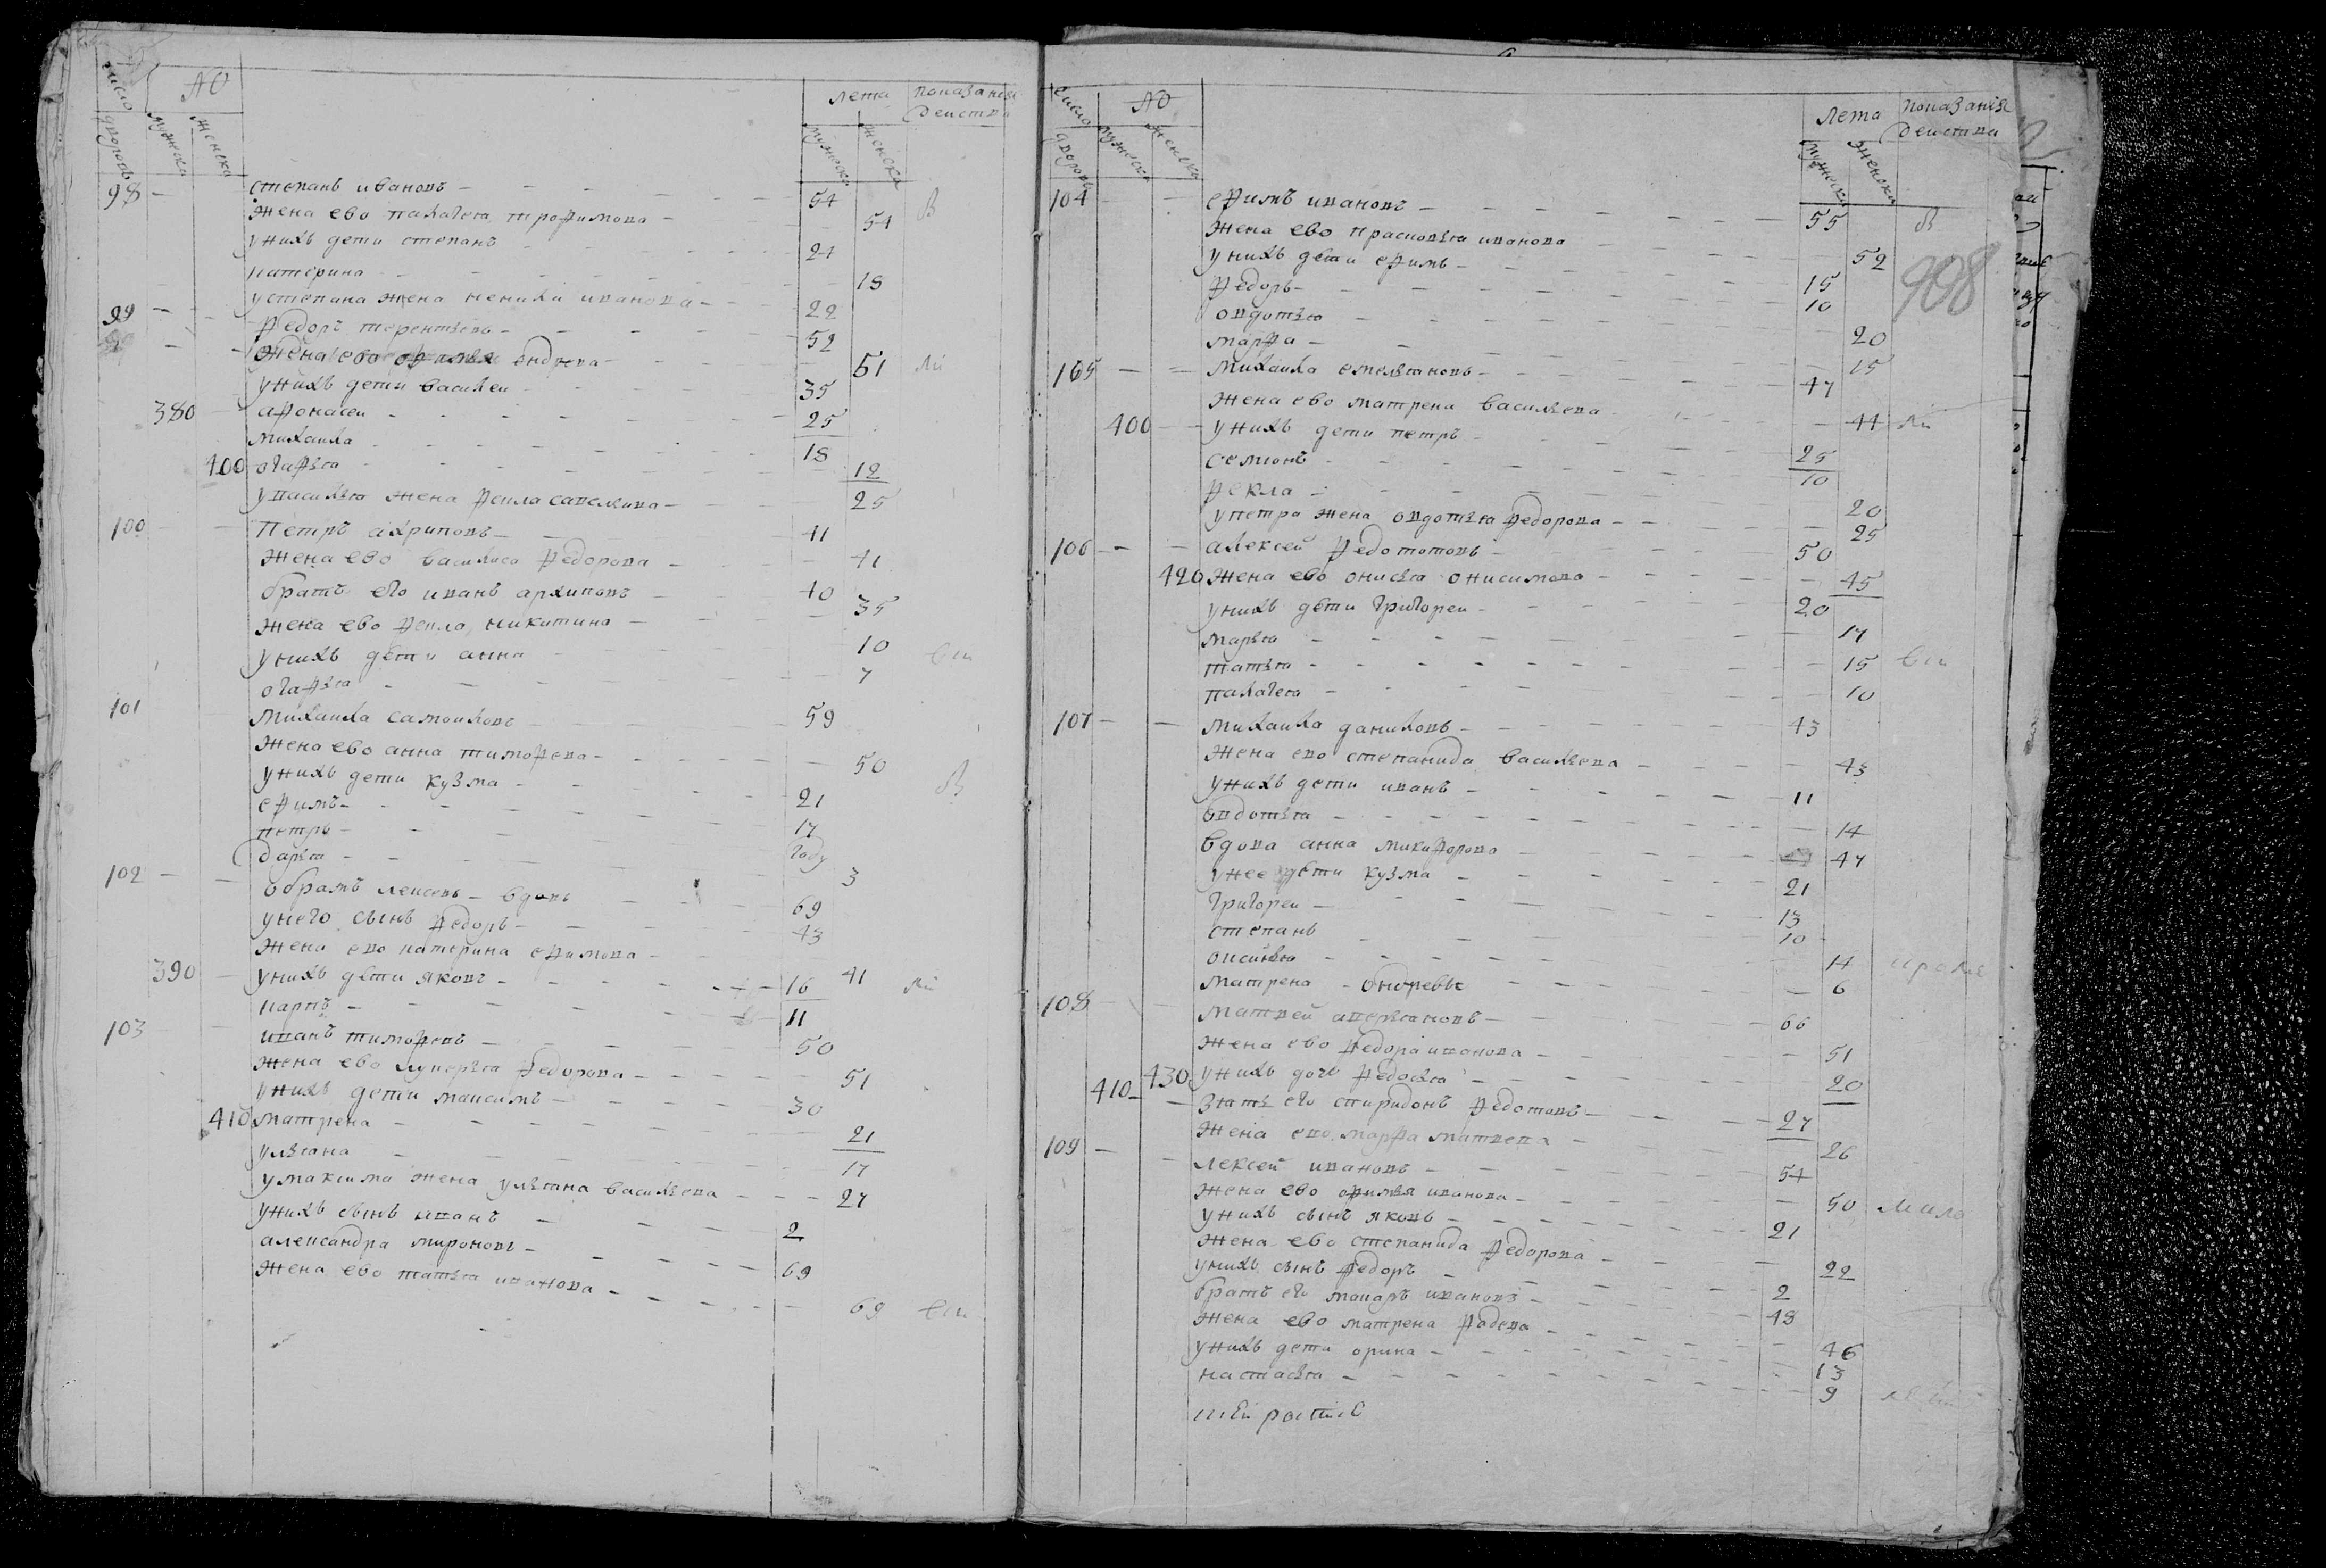 число дворовъ
№
мужеска
женска
лета
мужеска
женска
показание действа
98 степанъ ивановъ 54
жена ево палагея трофимова 54
у нихъ дети степанъ 24
катерина 18
у степана жена иванова 22
99 федоръ терентьевъ 52
жена ево ендреева 51
у нихъ дети василеи 35
380 афонасеи 25
михаила 18
400 огафья 12
у василья жена фекла савельива 25
100 петръ архиповъ 41
жена ево василиса федорова 41
братъ его иванъ архиповъ 40
жена ево фекла никитина 35
у нихъ дети анна 10
огафья 7
101 михаила самоиловъ 59
жена ево анна тимофева 50
у нихъ дети кузма 21
ефимъ 17
петръ году
дарья 3
102 обрамъ леисевъ вдовъ 69
у него сынъ федоръ 43
жена ево катерина ефимова 41
390 у нихъ дети яковъ 16
карпъ 11
103 иванъ тимофевъ 50
жена ево лукерья федорова 51
у нихъ дети максимъ 30
410 матрена 21
ульяна 17
у максима жена ульяна васильева 27
у нихъ сынъ иванъ 2
александра мироновъ 69
жена ево татья иванова 69
число дворовъ
№
мужеска
женска
лета
мужеска
женска
показание действа
908
104 ефимъ ивановъ 55
жена ево прасковья иванова 52
у нихъ дети ефимъ 15
федоръ 10
овдотья 20
марфа 15
105 михаила емельяновъ 47
жена ево матрена васильева 44
400 у нихъ дети петръ 25
семионъ 10
фекла 20
у петра жена овдотья федорова 25
106 алексей федототовъ 50
420 жена ево онисья онисимова 45
у нихъ дети григореи 20
марья 17
татья 15
палагея 10
107 михаила даниловъ 43
жена ево степанида васильева 43
у нихъ дети иванъ 11
овдотья 14
вдова анна микифорова 47
у нее дети кузма 21
григореи 13
степанъ 10
онисья 14
матрена 6
108 матвей аверьяновъ 66
жена ево федора иванова 51
430 у нихъ дочь федосья 20
410 зять его спиридонъ федотовъ 27
жена ево марфа матвева 26
109 лексей ивановъ 54
жена ево офимья иванова 50
у нихъ сынъ яковъ 21
жена ево степанида федорова 22
у нихъ сынъ федоръ 2
братъ его макаръ ивановъ 48
жена ево матрена фадева 46
у нихъ дети орина 13
настасья 9